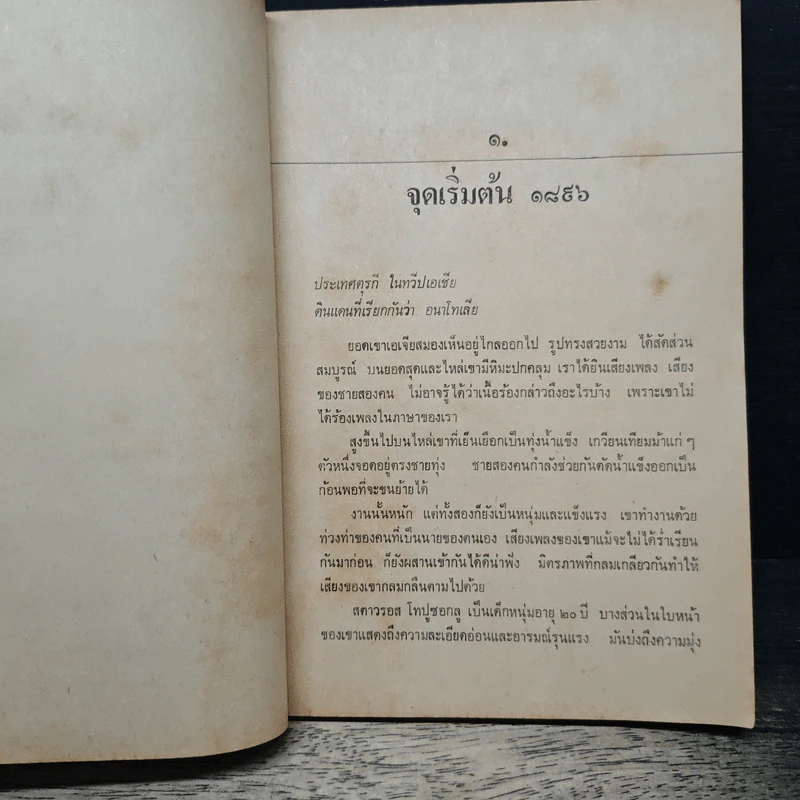 ๑.
จุดเริ่มต้น ๑๘๙๖
ประเทศตุรกี ในทวีปเอเชีย
ดินแดนที่เรียกกันว่า อนาโทเลีย
ยอดเขาเอเจียสมองเห็นอยู่ไกลออกไป รูปทรงสวยงาม ได้สัดส่วน
สมบูรณ์ บนยอดสุดและไหล่เขามีหิมะปกคลุม เราได้ยินเสียงเพลง เสียง
ของชายสองคน ไม่อาจรู้ได้ว่าเนื้อร้องกล่าวถึงอะไรบ้าง เพราะเขาไม่
ได้ร้องเพลงในภาษาของเรา
สูงขึ้นไปบนไหล่เขาที่เย็นเยือกเป็นทุ่งน้ำแข็ง เกวียนเทียมม้าแก่ ๆ
ตัวหนึ่งจอดอยู่ตรงชายทุ่ง ชายสองคนกำลังช่วยกันตัดน้ำแข็งออกเป็น
ก้อนพอที่จะขนย้ายได้
งานนั้นหนัก แต่ทั้งสองก็ยังเป็นหนุ่มและแข็งแรง เขาทำงานด้วย
ท่วงท่าของคนที่เป็นนายของตนเอง เสียงเพลงของเขาแม้จะไม่ได้ร่ำเรียน
กันมาก่อน ก็ยังผสานเข้ากันได้ดีน่าฟัง มิตรภาพที่กลมเกลียวกันทำให้
เสียงของเขากลมกลืนตามไปด้วย
สตาวรอส โทปูซอกลู เป็นเด็กหนุ่มอายุ ๒๐ ปี บางส่วนในใบหน้า
ของเขาแสดงถึงความละเอียดอ่อนและอารมณ์รุนแรง มันบ่งถึงความมุ่ง